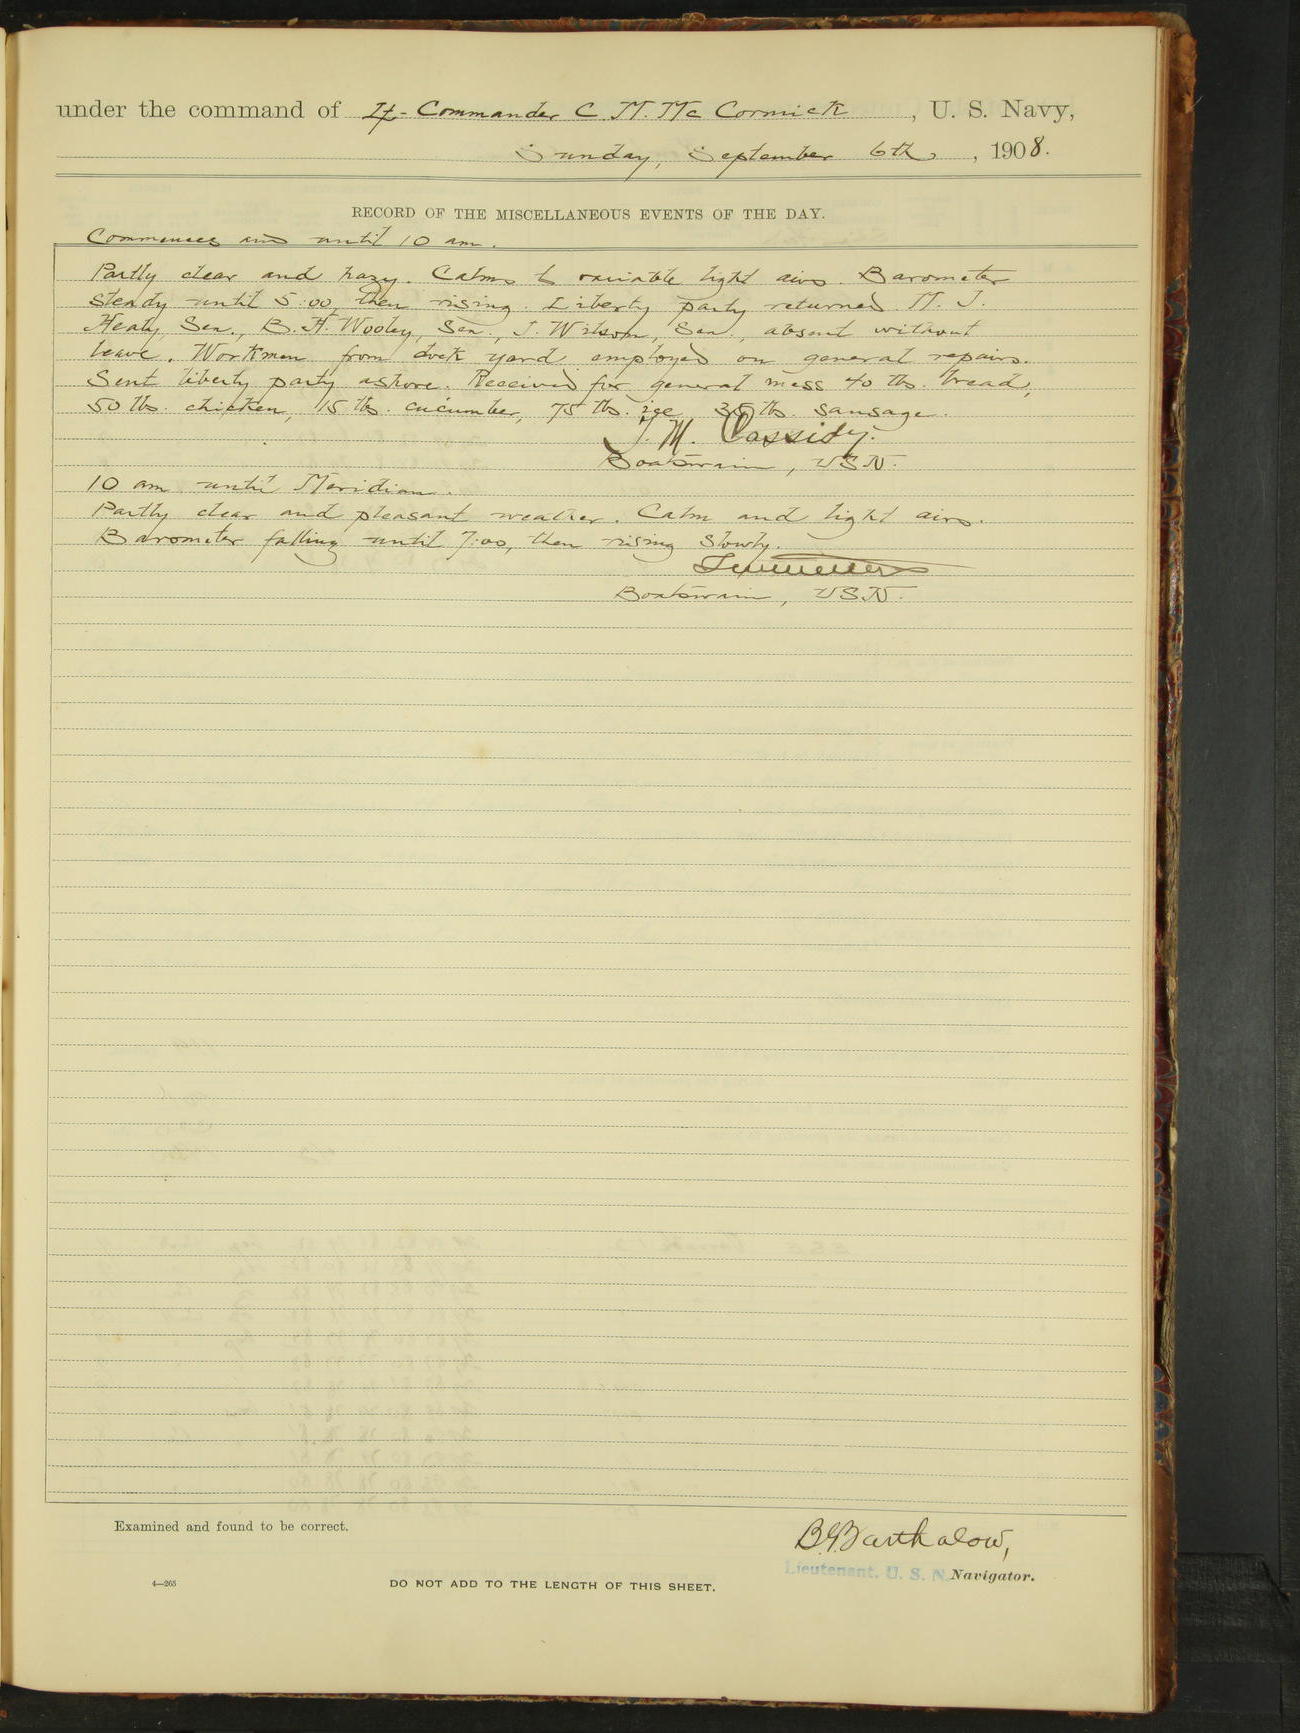 under the command of Lt-Commander C M. Mc Cormick, U. S. Navy,
Sunday, September 6th, 1908.
RECORD OF THE MISCELLANEOUS EVENTS OF THE DAY.
Commences and until 10 am.
Partly clear and hazy. Calms to variable light airs. Barometer
steady until 5:00, then rising. Liberty party returned M. J.
Healy, Sea., B. H. Wooley, Sea., J. Wilson, Sea., absent without
leave. Workmen from dock yard employed on general repairs.
Sent liberty party ashore. Received for general mess 40 lbs. bread,
50 lbs. chicken, 15 lbs. cucumber, 75 lbs. ice, 35 lbs. sausage.
J. M. Cassidy.
Boatswain, USN.
10 am until Meridian.
Partly clear and pleasant weather. Calm and light airs.
Barometer falling until 7:00, then rising slowly.
Boatswain, USN.
Examined and found to be correct.
B G Barthalow,
Lieutenant, U. S. N. Navigator.
4—265
DO NOT ADD TO THE LENGTH OF THIS SHEET.